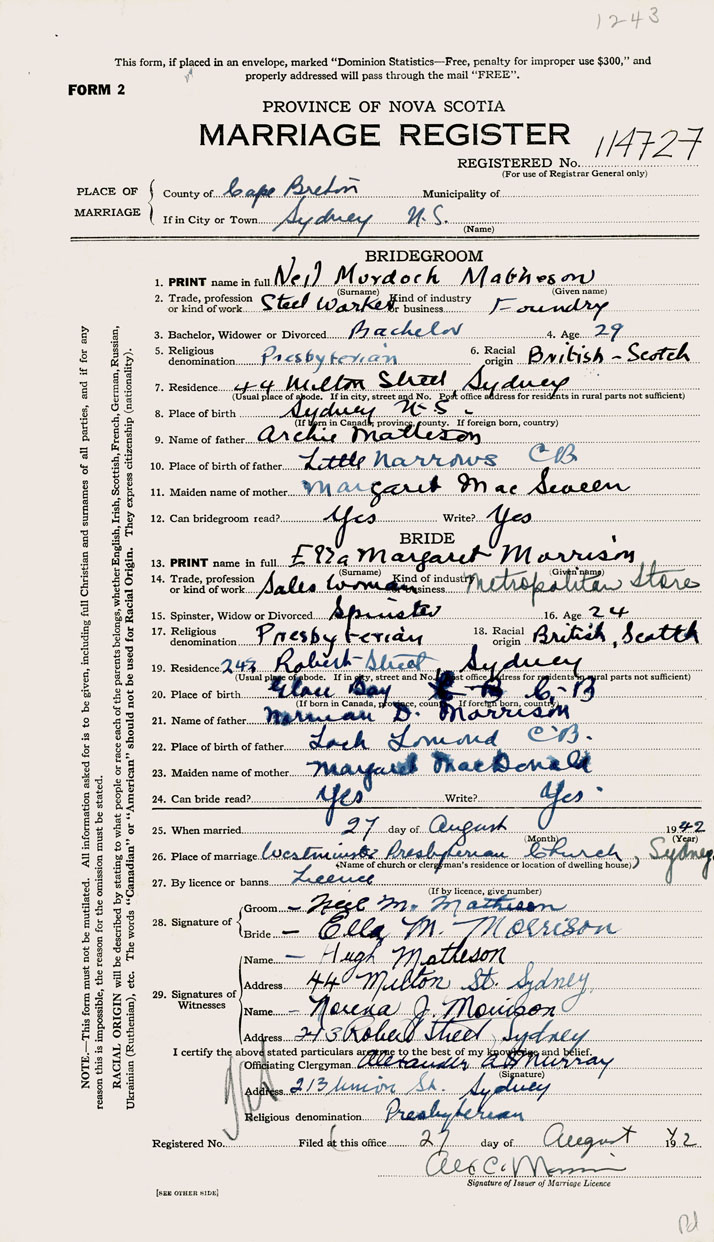 1243
This form, if placed in an envelope, marked “Dominion Statistics—Free, penalty for improper use $300,” and
properly addressed will pass through the mail “FREE”.
FORM 2
PROVINCE OF NOVA SCOTIA
MARRIAGE REGISTER
REGISTERED No. 114727
(For use of Registrar General only)
PLACE OF MARRIAGE
County of Cape Breton Municipality of
If in City or Town Sydney N.S.
(Name)
BRIDEGROOM
1. PRINT name in full Neil Murdoch Matheson
(Surname) (Given name)
2. Trade, profession or kind of work Steel Worker Kind of industry or business Foundry
3. Bachelor, Widower or Divorced Bachelor 4. Age 29
5. Religious denomination Presbyterian 6. Racial origin British - Scotch
7. Residence 44 Milton Street, Sydney
(Usual place of abode. If in city, street and No. Post office address for residents in rural parts not sufficient)
8. Place of birth Sydney N.S.
(If born in Canada, province, county. If foreign born, country)
9. Name of father Archie Matheson
10. Place of birth of father Little Narrows CB
11. Maiden name of mother Margaret Mac Sween
12. Can bridegroom read? Yes Write? Yes
BRIDE
13. PRINT name in full Ella Margaret Morrison
(Surname) (Given name)
14. Trade, profession or kind of work Sales Woman Kind of industry business Metropolitan Store
15. Spinster, Widow or Divorced Spinster 16. Age 24
17. Religious denomination Presbyterian 18. Racial origin British, Scotch
19. Residence 243 Robert Street Sydney
(Usual place of abode. If in city, street and No. Post office address for residents in rural parts not sufficient)
20. Place of birth Glace Bay C-B
(If born in Canada, province, county. If foreign born, country)
21. Name of father Norman D. Morrison
22. Place of birth of father Loch Lomond C.B.
23. Maiden name of mother Margaret MacDonald
24. Can bride read? Yes Write? Yes
25. When married 27 day of August 1942
(Month) (Year)
26. Place of marriage Westminster Presbyterian Church, Sydney
(Name of church or clergyman's residence or location of dwelling house)
27. By licence or banns Licence
(If by licence, give number)
28. Signature of Groom – Neil M. Matheson
Bride – Ella M. Morrison
29. Signatures of Witnesses
Name – Hugh Matheson
Address 44 Milton St. Sydney
Name – Norena J. Morrison
Address 243 Robert Street, Sydney
I certify the above stated particulars are true to the best of my knowledge and belief.
Officiating Clergyman Alexander Murray
(Signature)
Address 213 Union St. Sydney
Religious denomination Presbyterian
Registered No. Filed at this office 27 day of August 1942
Signature of Issuer of Marriage Licence
[SEE OTHER SIDE]
Pd
NOTE.—This form must not be mutilated. All information asked for is to be given, including full Christian and surnames of all parties, and if for any
reason this is impossible, the reason for the omission must be stated.
RACIAL ORIGIN will be described by stating to what people or race each of the parents belongs, whether English, Irish, Scottish, French, German, Russian,
Ukrainian (Ruthenian), etc. The words “Canadian” or “American” should not be used for Racial Origin. They express citizenship (nationality).